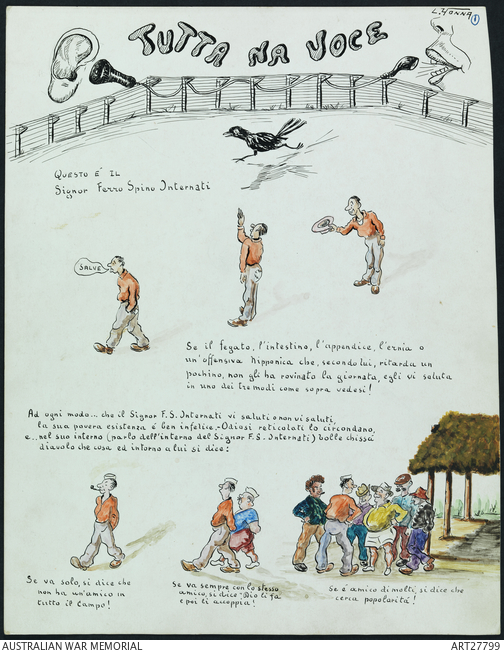 L. HANNA
1
TUTTA NA VOCE
QUESTO É IL
Signor Ferro Spino Internati
SALVE
Se il fegato, l'intestino, l'appendice, l'ernia o
un'offensiva Nipponica che, secondo lui, ritarda un
pochino, non gli ha rovinato la giornata, egli vi saluta
in uno dei tre modi come sopra vedesi!
Ad ogni modo... che il Signor F.S. Internati vi saluti o non vi saluti,
la sua povera esistenza é ben infelice. Odiosi reticolati lo circondano,
e... nel suo interno (parlo dell'interno del Signor F.S. Internati) bolle chissà
diavolo che cosa ed intorno a lui si dice:
Se va solo, si dice che
non ha un'amico in
tutto il Campo!
Se va sempre con lo stesso
amico, si dice "Dio li fa
e poi li accoppia!
Se é amico di molti, si dice che
cerca popolarità!
AUSTRALIAN WAR MEMORIAL
ART27799